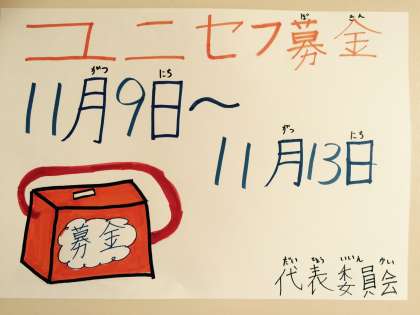 ユニセフ募金
ぼ きん
11月9日～
がつ にち
11月13日
がつ にち
募金
代表委員会
だい ひょう いいん かい